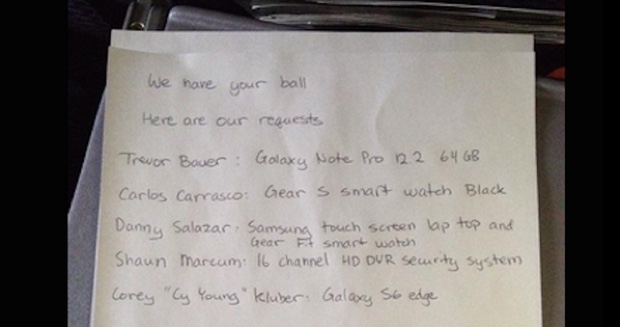 We have your ball
Here are our requests
Trevor Bauer : Galaxy Note Pro 12.2 64 GB
Carlos Carrasco: Gear S smart watch Black
Danny Salazar: Samsung touch screen lap top and
Gear Fit smart watch
Shaun Marcum: 16 channel HD DVR security system
Corey "Cy Young" Kluber: Galaxy S6 edge